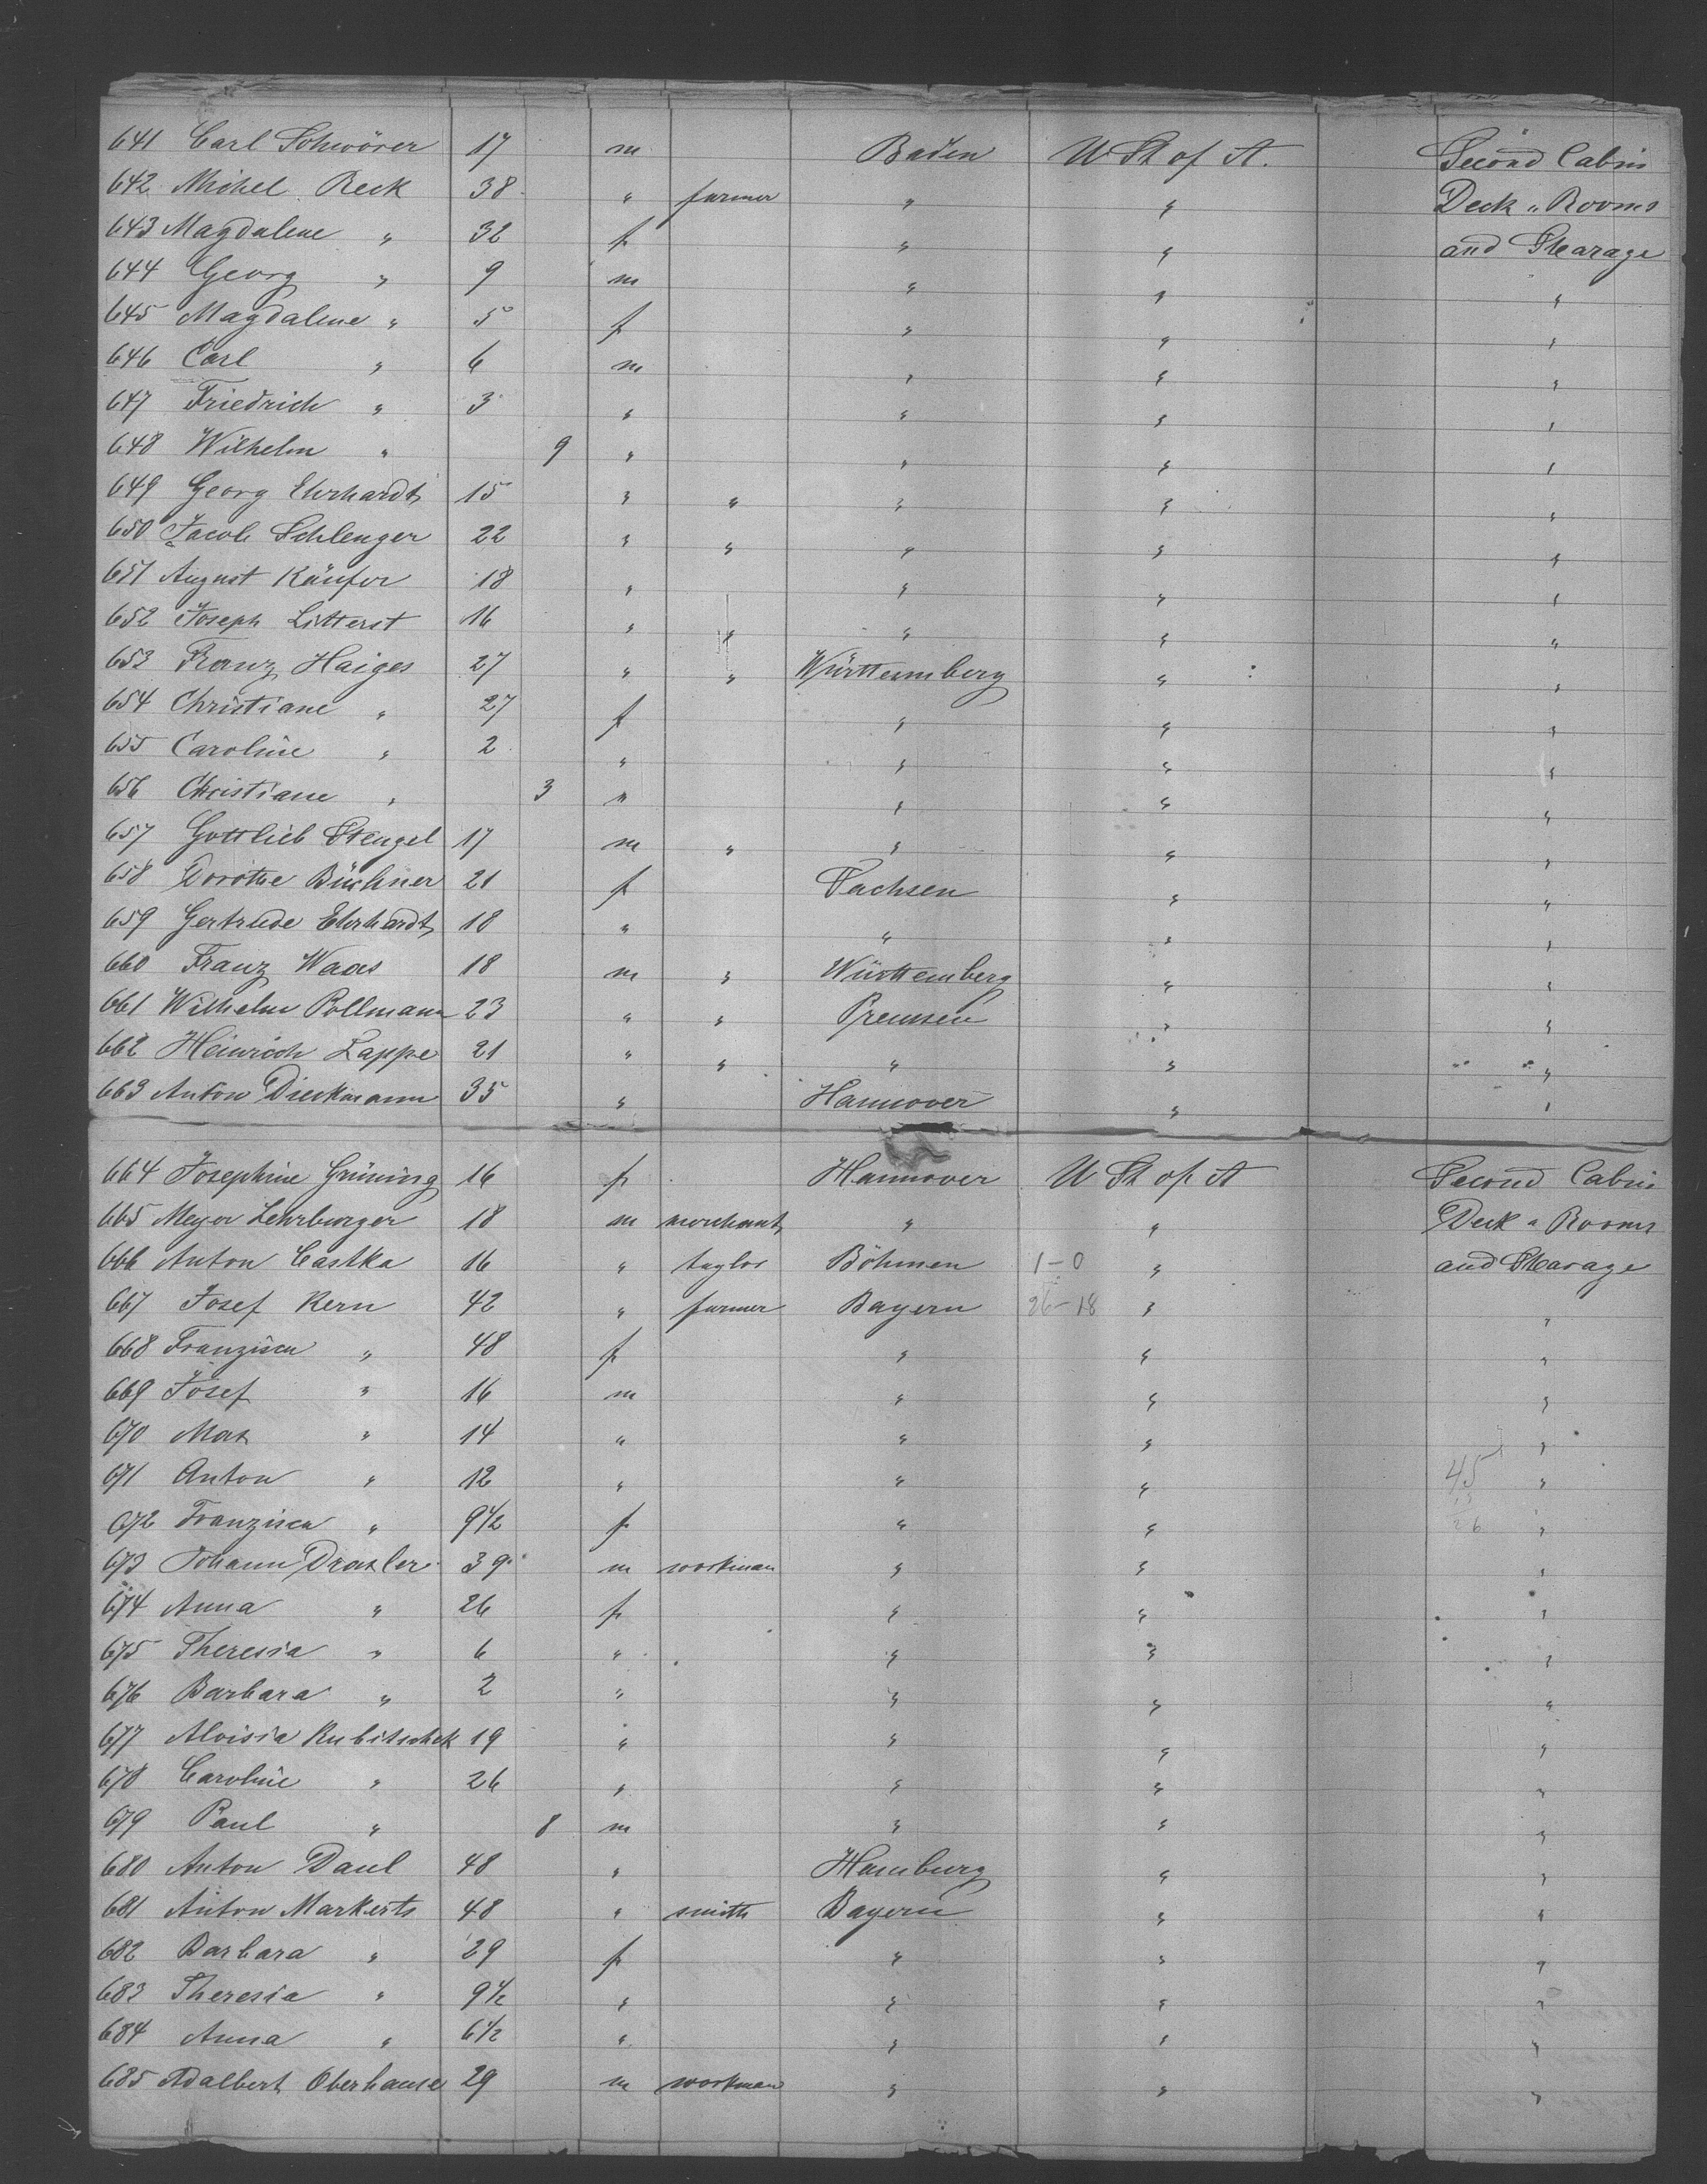 641 Carl Schwörer 17 m Baden U St of A. Second Cabin
642 Michel Reck 38 " farmer " " Deck " Rooms
643 Magdalene " 32 f " " and Stearage
644 Georg " 9 m " " "
645 Magdalene " 5 f " " "
646 Carl " 6 m " " "
647 Friedrich " 3 " " " "
648 Wilhelm " 9 " " " "
649 Georg Ehrhardt 15 " " " " "
650 Jacob Schlenger 22 " " " " "
651 August Käufer 18 " " " "
652 Joseph Litterst 16 " " " " "
653 Franz Haiges 27 " " Württemberg " "
654 Christiane " 27 f " " "
655 Caroline " 2 " " " "
656 Christiane " 3 " " " "
657 Gottlieb Stengel 17 m " " " "
658 Dorothe Büchner 21 f Sachsen " "
659 Gertrude Ehrhardt 18 " " " "
660 Franz Waas 18 m " Württemberg " "
661 Wilhelm Pollmann 23 " " Preussen " "
662 Heinrich Lappe 21 " " " " "
663 Anton Dieckmann 35 " Hannover " "
664 Josephine Grüning 16 f Hannover U St of A Second Cabin
665 Meyer Lehrburger 18 m merchant " " Deck " Rooms
666 Anton Castka 16 " taylor Böhmen 1-0 " and Stearage
667 Josef Kern 42 " farmer Bayern 26-18 " "
668 Franzisca " 48 f " " "
669 Josef " 16 m " " "
670 Max " 14 " " " "
671 Anton " 12 " " " 45 "
672 Franzisca " 9 1/2 f " " "
673 Johann Draxler 39 m workman " " "
674 Anna " 26 f " " "
675 Theresia " 6 " " " "
676 Barbara " 2 " " " "
677 Aloisia Kubitschek 19 " " " "
678 Caroline " 26 " " " "
679 Paul " 8 m " " "
680 Anton Daul 48 " Hamburg " "
681 Anton Markerts 48 " smith Bayern " "
682 Barbara " 29 f " " "
683 Theresia " 9 1/2 " " " "
684 Anna " 6 1/2 " " " "
685 Adalbert Oberhause 29 m workman " " "